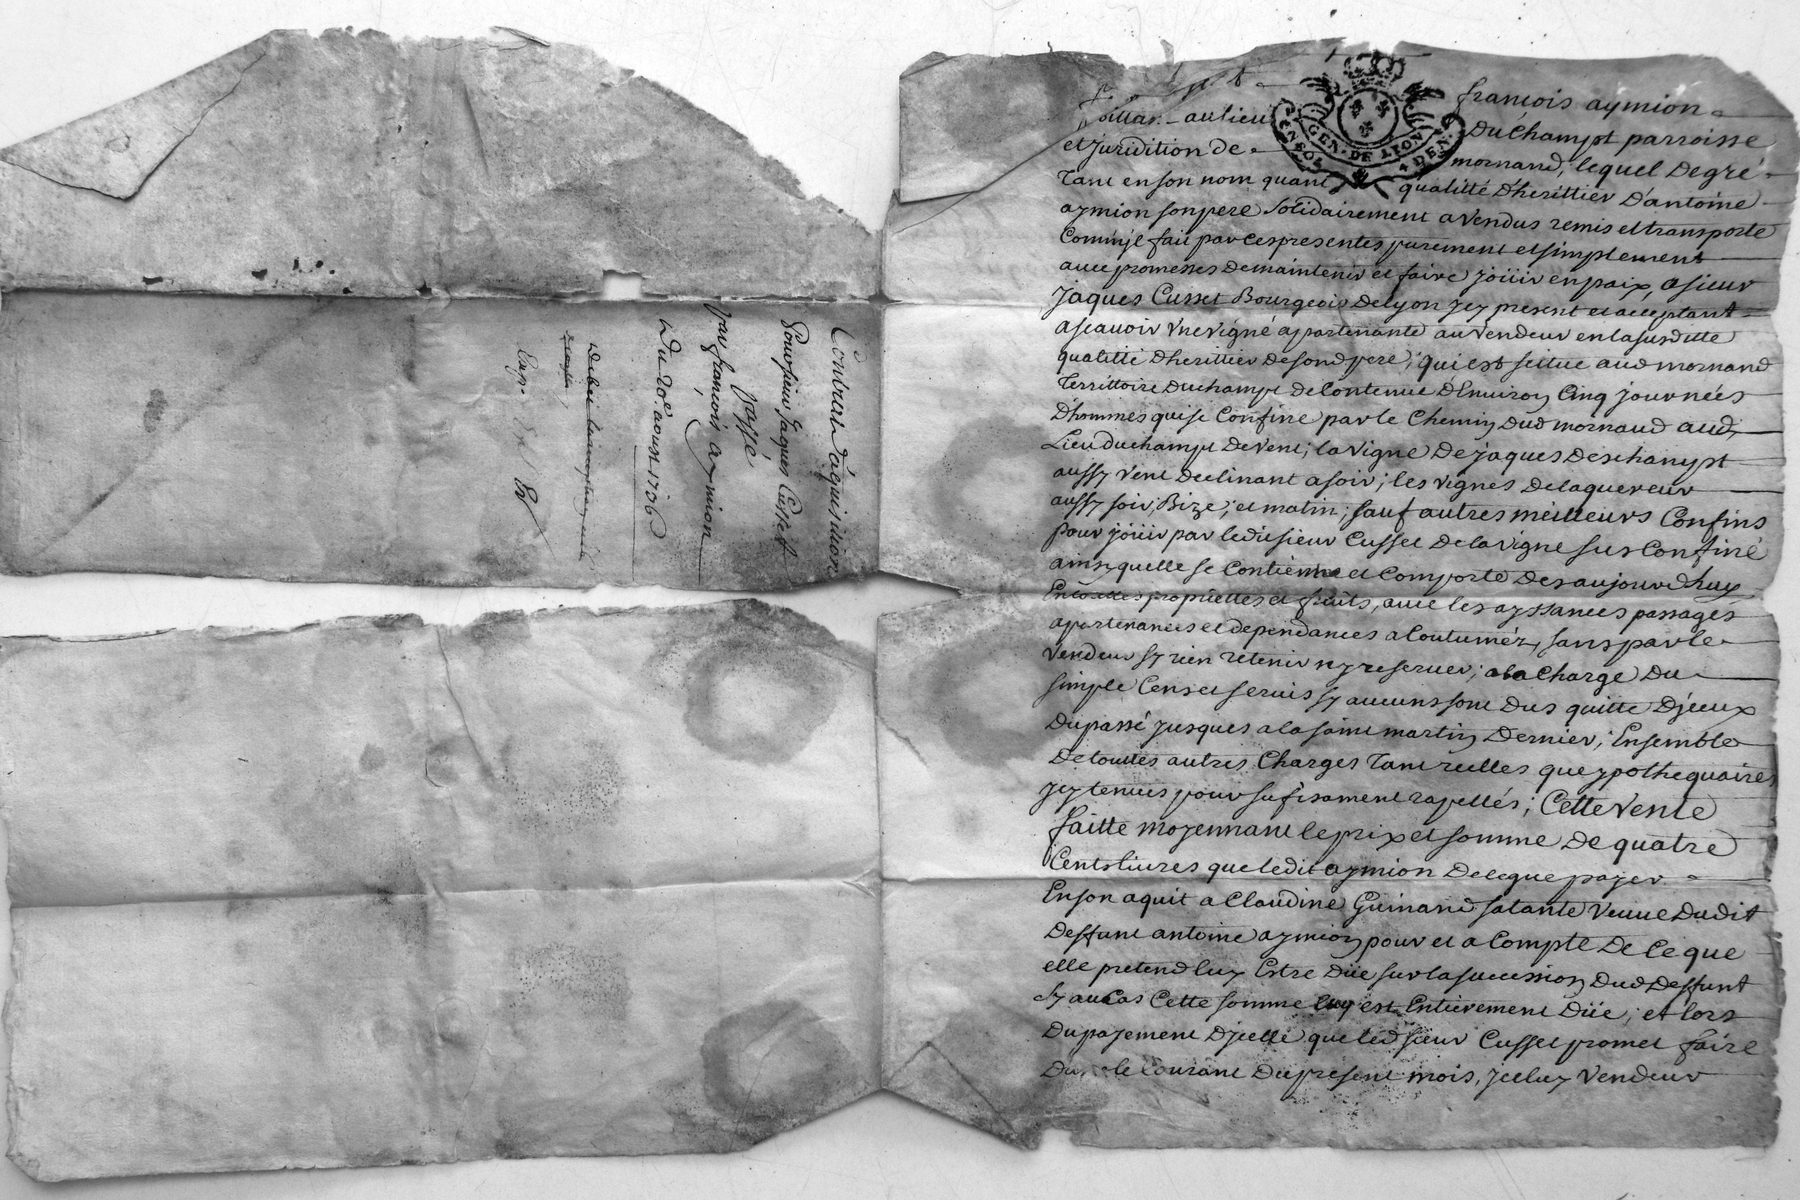 Contrat d'aquisition
Pour sieur Jaques Cusset
passé
par françois aymion
Du 20e. aoust 1736
françois aymion
au lieu Du Champt parroisse
GEN. DE LION
et Juridition de mornand, lequel De gré
Tant en son nom quant qualitté Dherittier D'antoine
aymion son pere Solidairement a vendus remis et transporté
Comm'il fait par ces presentes purement et simplement
avec promesses De maintenir et faire joüir en paix, a sieur
Jaques Cusset Bourgeois De Lyon Jcy present et acceptant
a scavoir vne vigné apartenante au vendeur en la susditte
qualitté Dherittier de sond pere, qui est sittue aud mornand
Territtoire Du champt de Contenue D'Enuiron Cinq journeés
D'hommes qui se Confine par le Chemin Dud mornand aud
Lieu du champt De vent; la vigne De jaques Deschampt
aussy vent Declinant a soir; les vignes De laquereur
aussy soir, Bize, et matin; sauf autres meilleurs Confins
pour joüir par ledit sieur Cusset De la vigne sus Confiné
ainsy quelle se Contienne et Comporte Des aujourdhuy
En touttes propriettes et fruits, avec les ayssances passages
apartenances et dependances a Coutuméz, sans par le
vendeur sy rien retenir ny reseruer; a la Charge Du
simple Cens et seruis sy aucuns sont Dus quitte D'jceux
Du passé jusques a la saint martin Dernier; Ensemble
De touttes autres Charges Tant reelles que ypothequaires
Jcy tenues pour sufisament rapellés; Cette vente
faitte moyennant le prix et somme De quatre
Cents liures que ledit aymion Delegue payer
En son aquit a Claudine Guinand sa tante veuue Dudit
Deffunt antoine aymion pour et a Compte De Ce que
elle pretend luy Estre Düe sur la succession Dud Deffunt
sy au Cas Cette somme luy est Entierement Düe; et lors
Du payement D'jcelle que led sieur Cusset promet faire
le Courant Du present mois, jceluy vendeur